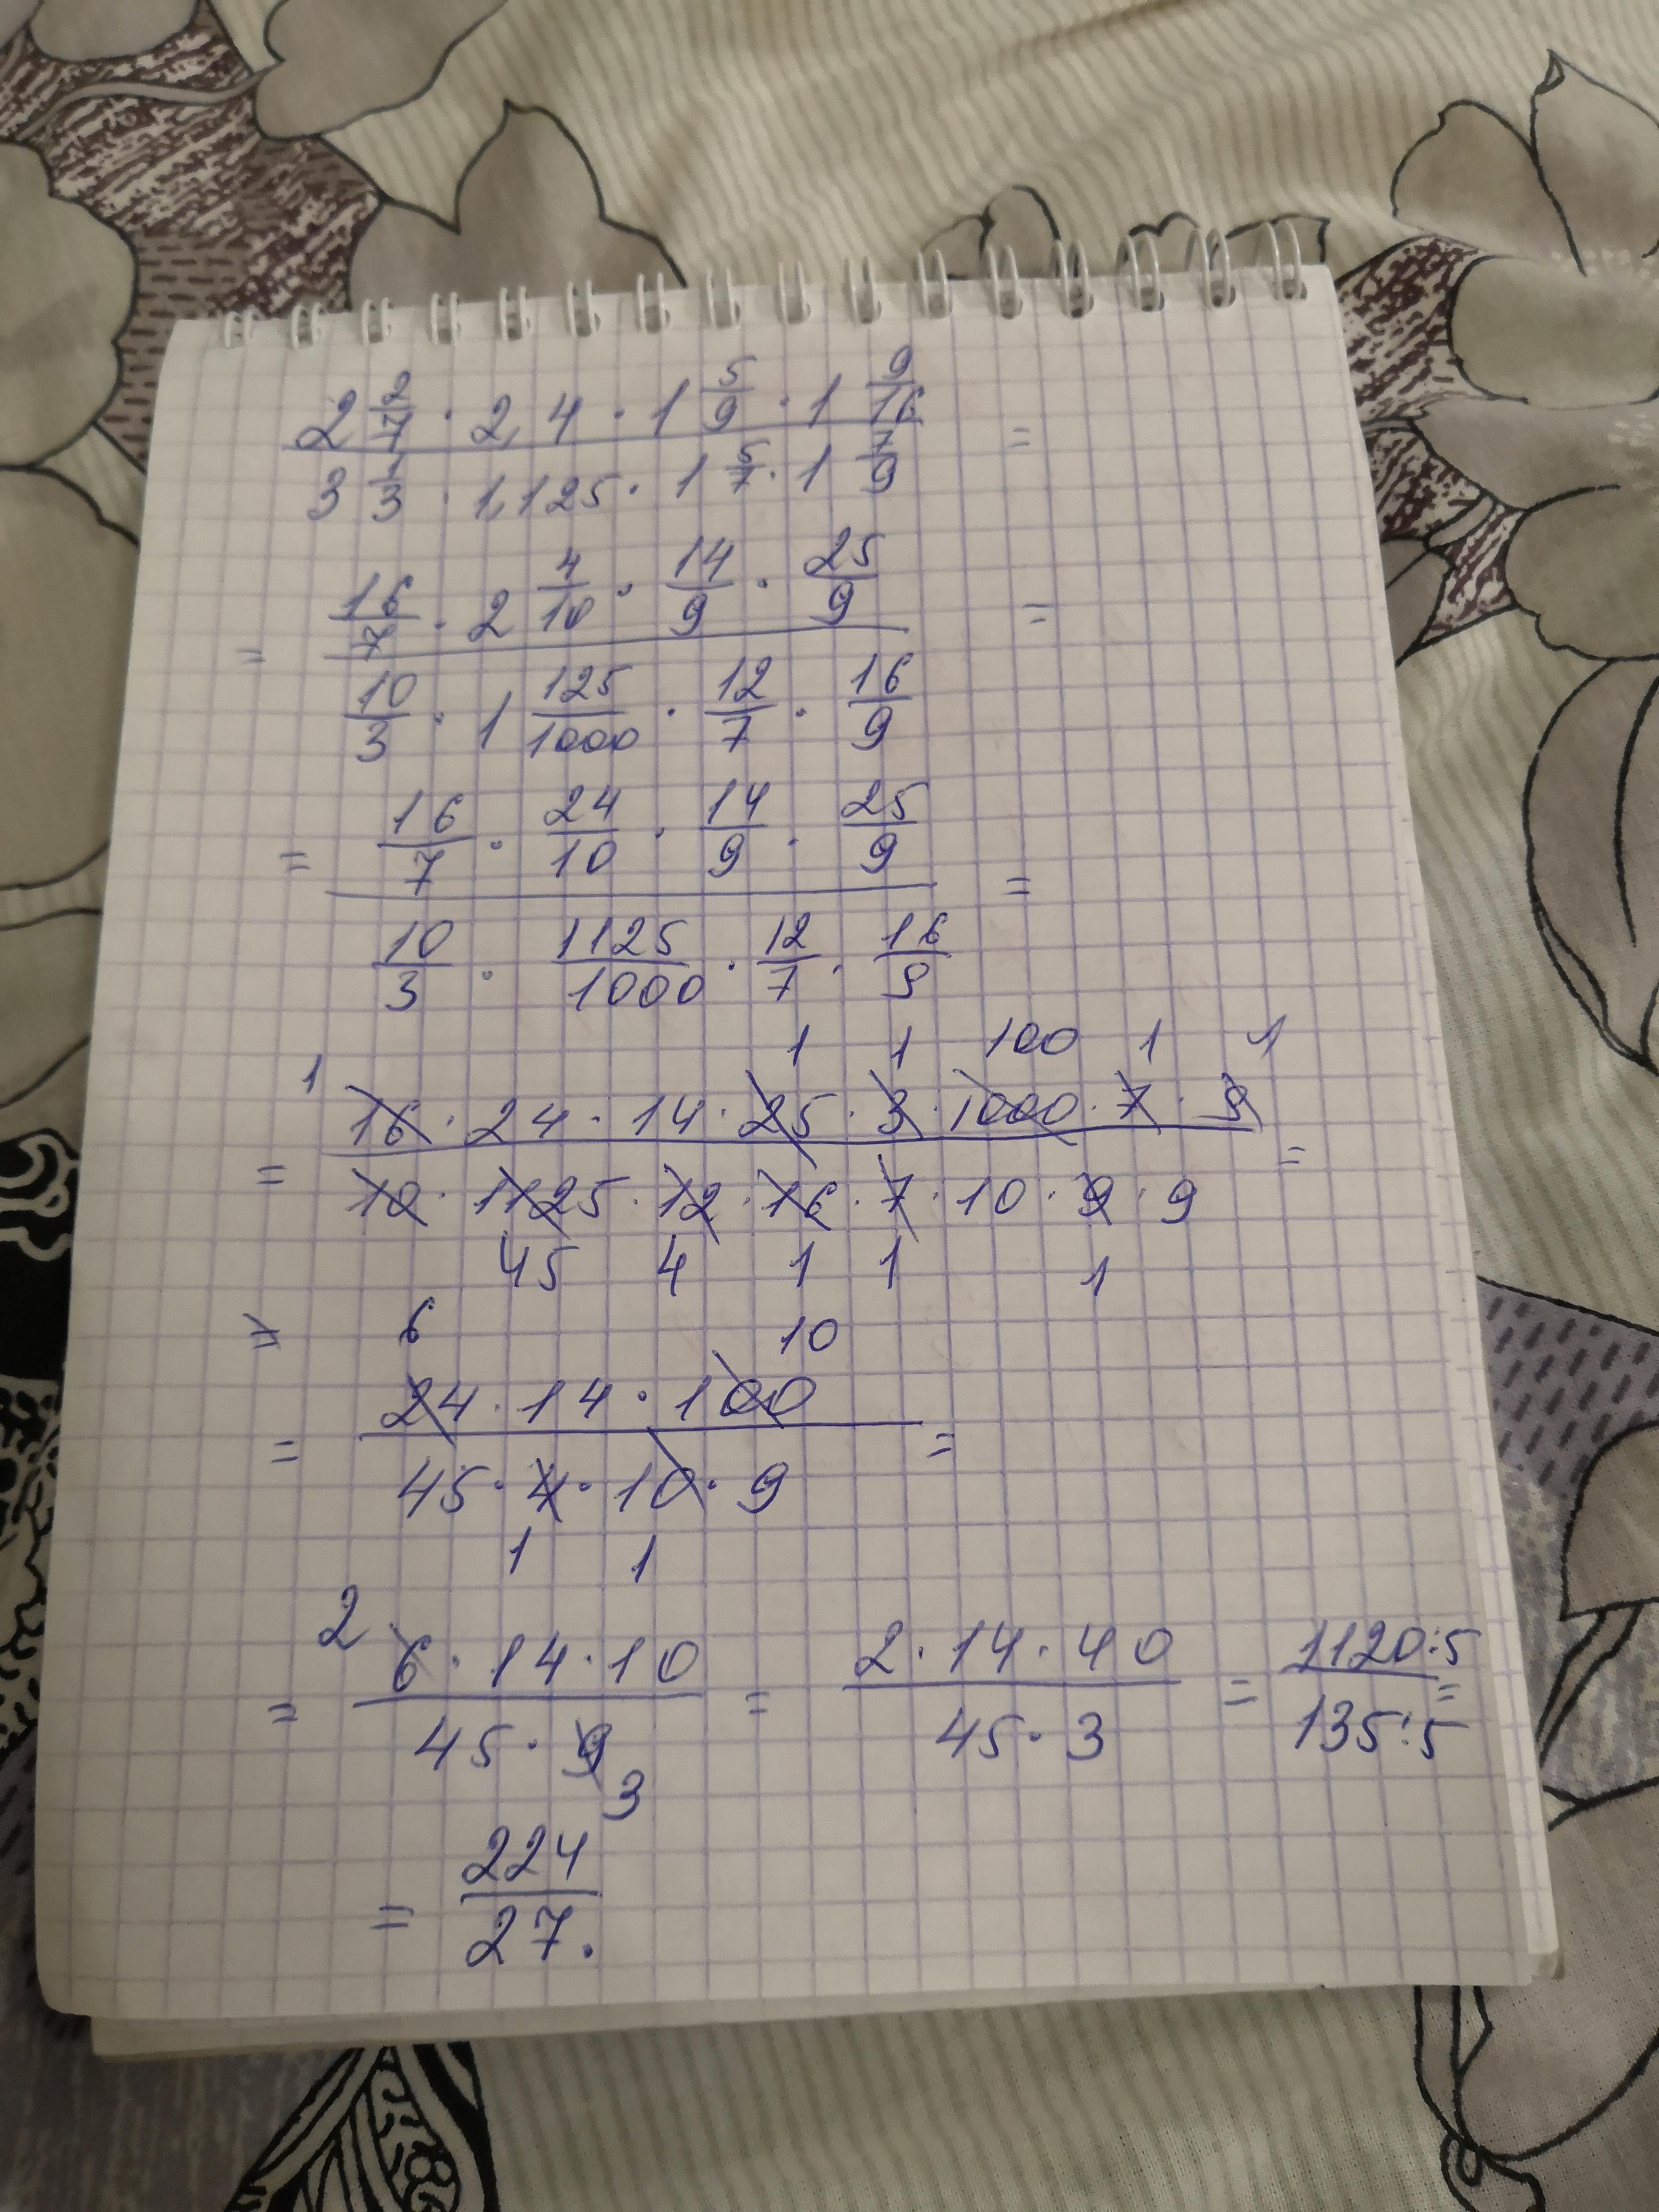 2 2/7 · 2,4 · 1 5/9 · 1 9/16 =
3 1/3 · 1,125 · 1 5/7 · 1 7/9
= 16/7 · 2 4/10 · 14/9 · 25/9 =
10/3 · 1 125/1000 · 12/7 · 16/9
= 16/7 · 24/10 · 14/9 · 25/9 =
10/3 · 1125/1000 · 12/7 · 16/9
1 1 1 100 1 1
= 16 · 24 · 14 · 25 · 3 · 1000 · 7 · 9 =
10 · 1125 · 12 · 16 · 7 · 10 · 9 · 9
45 4 1 1 1
= 6 10
= 24 · 14 · 100 =
45 · 4 · 10 · 9
1 1
2
= 6 · 14 · 10 = 2 · 14 · 40 = 1120:5 =
45 · 9 45 · 3 135:5
3
= 224
27.